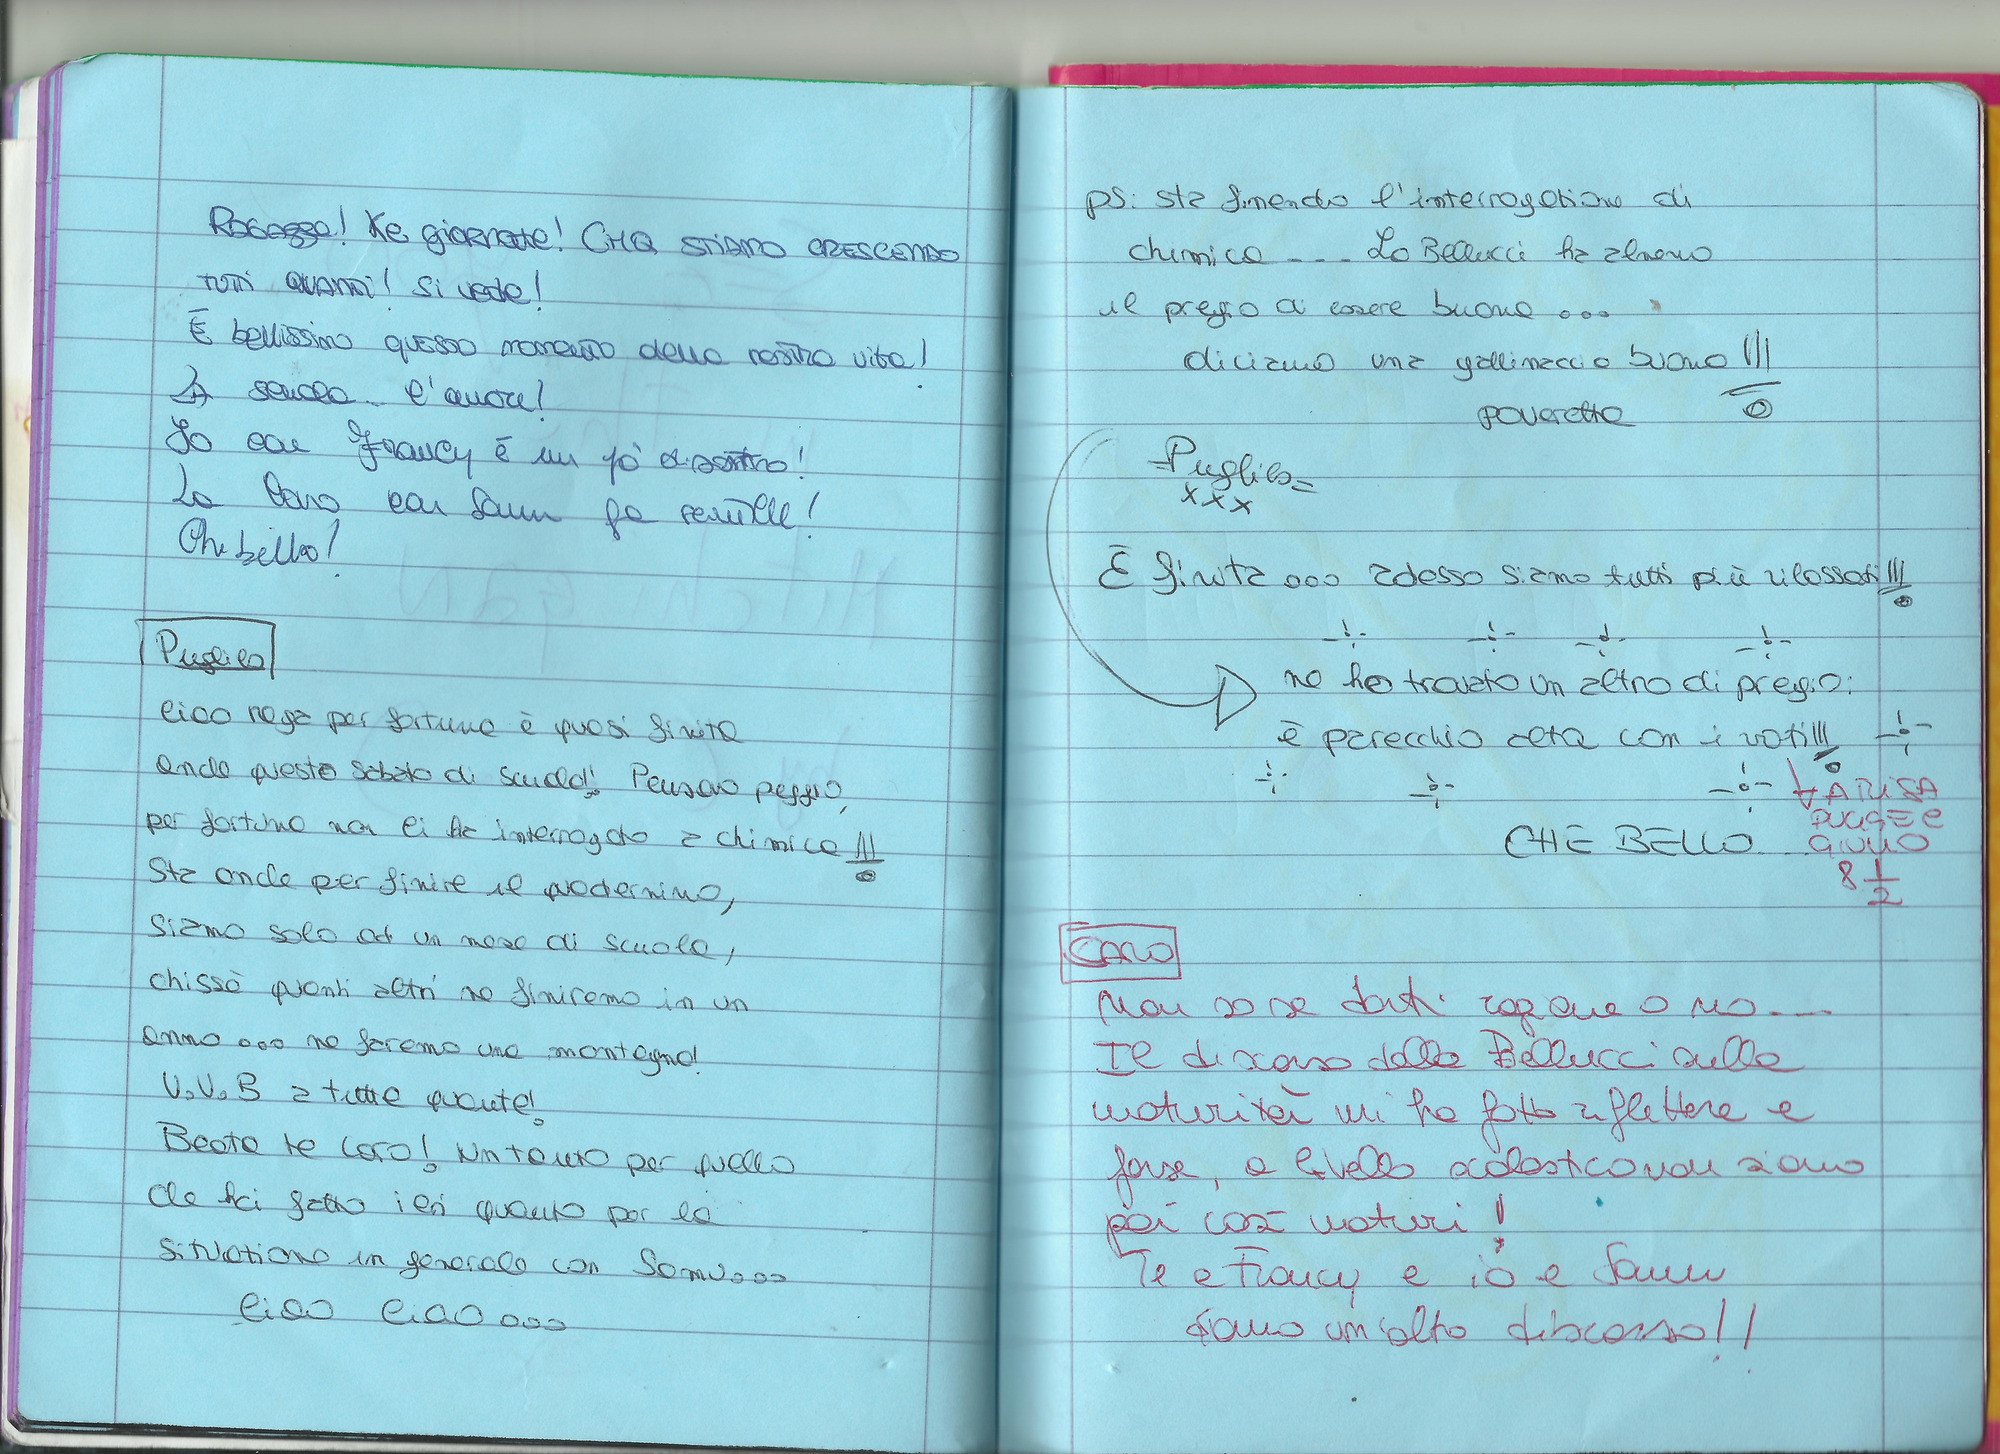 Ragazze! Ke giornate! CHE STIAMO CRESCENDO
TUTTI QUANTI! Si vede!
È bellissimo questo momento della nostra vita!
La scuola.. l'amore!
Io con Francy è un pò disastro!
La Caro con Samu fa scintille!
Che bello!
Puglies
Ciao raga per fortuna è quasi finita
anche questo sabato di scuola! Pensavo peggio,
per fortuna non ci ha interrogato a chimica!!!
Sta anche per finire il quadernino,
siamo solo ad un mese di scuola,
chissà quanti altri ne finiremo in un
anno ... ne faremo una montagna!
V.V.B a tutte quante!
Beata te Caro! Un tanto per quello
che hai fatto ieri quanto per la
situazione in generale con Samu...
Ciao Ciao...
ps: sta finendo l'interrogazione di
chimica --- La Bellucci ha almeno
il pregio di essere buona ...
diciamo una gallinaccia buona!!!
poveretta
-Puglies=
xxx
È finita ... adesso siamo tutti più rilassati!!!
ne ho trovato un altro di pregio:
è parecchio alta con i voti!!!
CHE BELLO
8 1/2
CARO
Non so se darti ragione o no....
Il discorso della Bellucci sulla
maturità mi ha fatto riflettere e
forse, a livello scolastico non siamo
poi così maturi!
Te e Francy e io e Samu
siamo un'altro discorso!!